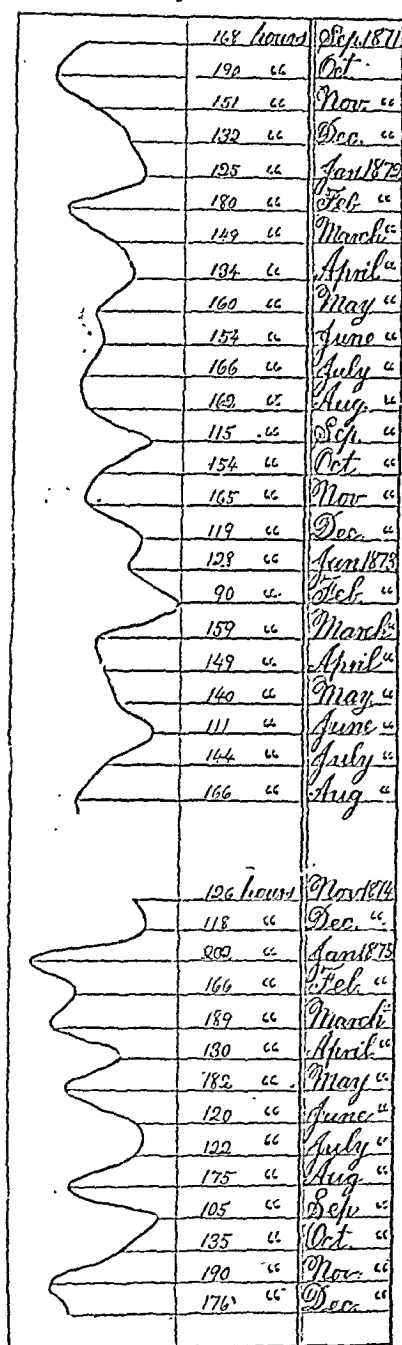 168 hours Sep. 1871
190 " Oct
151 " Nov. "
132 " Dec. "
125 " Jan 1872
180 " Feb "
149 " March "
134 " April "
160 " May "
154 " June "
166 " July "
162 " Aug. "
115 " Sep. "
154 " Oct "
165 " Nov "
119 " Dec. "
128 " Jan 1873
90 " Feb. "
159 " March "
149 " April "
140 " May. "
111 " June "
144 " July "
166 " Aug "
126 hours Nov 1874
118 " Dec. "
202 " Jan 1875
166 " Feb. "
189 " March "
130 " April "
182 " May "
120 " June "
122 " July "
175 " Aug "
105 " Sep "
135 " Oct. "
190 " Nov. "
176 " Dec. "